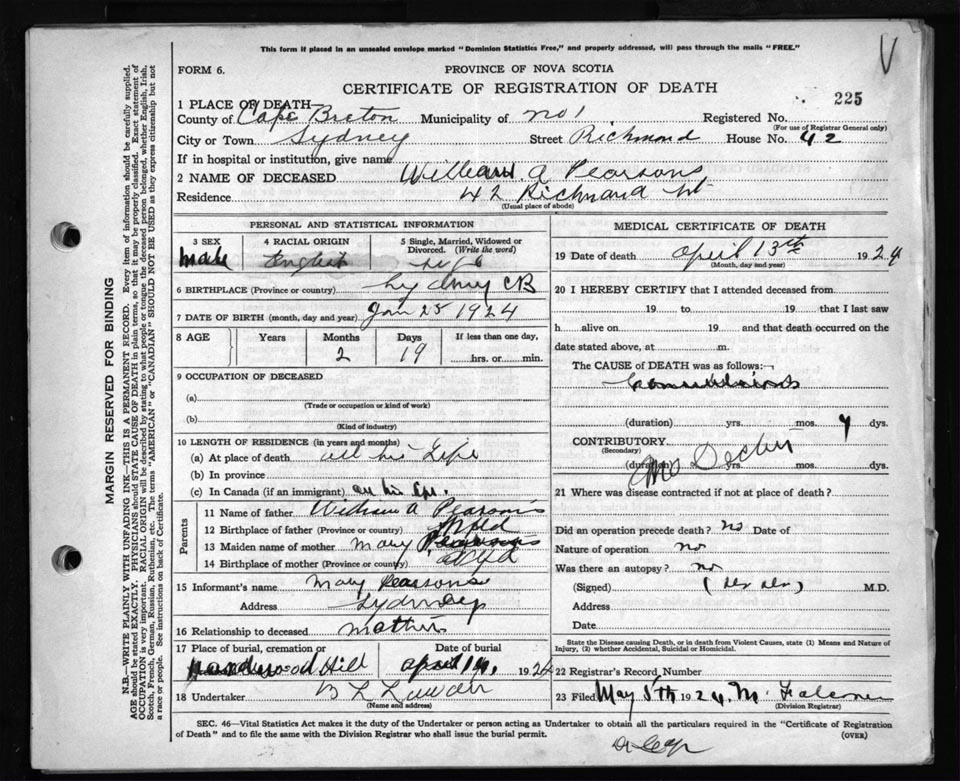 This form if placed in an unsealed envelope marked "Dominion Statistics Free," and properly addressed, will pass through the mails "FREE."
V
FORM 6.
PROVINCE OF NOVA SCOTIA
CERTIFICATE OF REGISTRATION OF DEATH
225
1 PLACE OF DEATH—
County of Cape Breton Municipality of No 1 Registered No.
(For use of Registrar General only)
City or Town Sydney Street Richmond House No. 42
If in hospital or institution, give name
2 NAME OF DECEASED William A Pearsons
Residence 42 Richmond St
(Usual place of abode)
PERSONAL AND STATISTICAL INFORMATION
3 SEX 4 RACIAL ORIGIN 5 Single, Married, Widowed or Divorced. (Write the word)
Male English
6 BIRTHPLACE (Province or country) Sydney CB
7 DATE OF BIRTH (month, day and year) Jan 25 1924
8 AGE Years Months Days If less than one day,
2 19 hrs. or min.
9 OCCUPATION OF DECEASED
(a)
(Trade or occupation or kind of work)
(b)
(Kind of industry)
10 LENGTH OF RESIDENCE (in years and months)
(a) At place of death all his Life
(b) In province
(c) In Canada (if an immigrant) all his life.
Parents
11 Name of father William A Pearsons
12 Birthplace of father (Province or country) Nfld
13 Maiden name of mother Mary Pearsons
14 Birthplace of mother (Province or country) Nfld
15 Informant's name Mary Pearsons
Address Sydney
16 Relationship to deceased Mother
17 Place of burial, cremation or Date of burial
Hill April 14, 1924
18 Undertaker
(Name and address)
MEDICAL CERTIFICATE OF DEATH
19 Date of death April 13th 1924
(Month, day and year)
20 I HEREBY CERTIFY that I attended deceased from
19 to 19 that I last saw
h alive on 19 and that death occurred on
date stated above, at m.
The CAUSE of DEATH was as follows:
Convulsions
(duration) yrs. mos. dys.
CONTRIBUTORY
(Secondary)
No Doctor
(duration) yrs. mos. dys.
21 Where was disease contracted if not at place of death?
Did an operation precede death? No Date of
Nature of operation no
Was there an autopsy? no
(Signed) M.D.
Address
Date
State the Disease causing Death, or in death from Violent Causes, state (1) Means and Nature of Injury, (2) whether Accidental, Suicidal or Homicidal.
22 Registrar's Record Number
23 Filed May 5th 1924. M. Falconer
(Division Registrar)
SEC. 46—Vital Statistics Act makes it the duty of the Undertaker or person acting as Undertaker to obtain all the particulars required in the "Certificate of Registration
of Death" and to file the same with the Division Registrar who shall issue the burial permit.
(OVER)
MARGIN RESERVED FOR BINDING
N.B.—WRITE PLAINLY WITH UNFADING INK—THIS IS A PERMANENT RECORD. Every item of information should be carefully supplied.
AGE should be stated EXACTLY. PHYSICIANS should STATE CAUSE OF DEATH in plain terms, so that it may be properly classified. Exact statement of
OCCUPATION is very important. RACIAL ORIGIN will be described by stating to what people or tongue the deceased person belonged, whether English, Irish,
Scotch, French, German, Russian, Ruthenian, etc. The terms "AMERICAN" or "CANADIAN" SHOULD NOT BE USED as they express citizenship but not
a race or people. See instructions on back of Certificate.